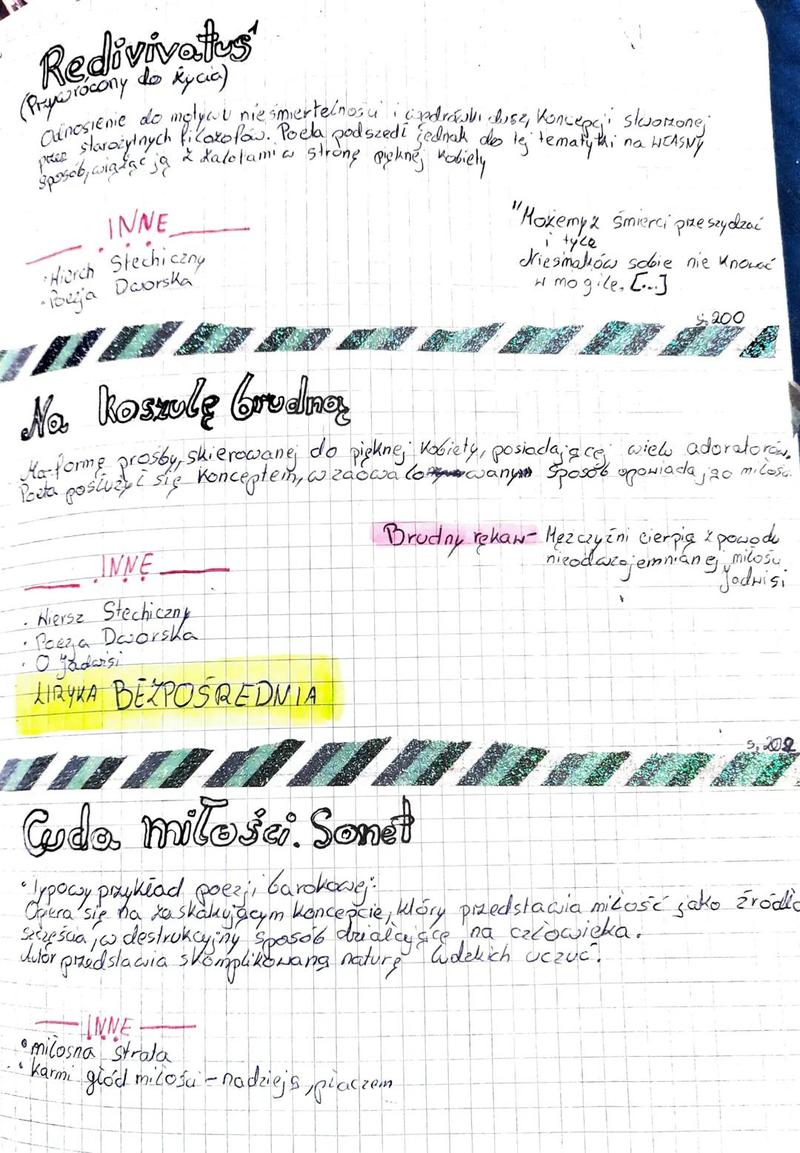 Redivivatus
(Przywrócony do życia)
Odnosienie do motywu nieśmiertelności i wędrówki dusz, koncepcji stworzonej
przez starożytnych filozofów. Poeta podszedł jednak do tej tematyki na WŁASNY
sposób, wiążąc ją z zalotami w stronę pięknej kobiety
INNE
• Wiersz Stechiczny
• Poezja Dworska
"Możemyż śmierci przeszydzać
i tyle
Niesmaków sobie nie knować
w mogile. [...]
s. 200
Na koszulę brudną
Ma formę prośby, skierowanej do pięknej kobiety, posiadającej wielu adoratorów.
Poeta posłużył się konceptem, w zaowalowanym sposób opowiadając o miłości.
Brudny rękaw - Mężczyźni cierpią z powodu
nieodwzajemnianej miłości
Jadwisi
INNE
• Wiersz Stechiczny
• Poezja Dworska
• O Jadwisi
LIRYKA BEZPOŚREDNIA
s. 202
Cuda miłości. Sonet
• Typowy przykład poezji barokowej:
Opiera się na zaskakującym koncepcie, który przedstawia miłość jako źródło
szczęścia, w destrukcyjny sposób działające na człowieka.
Autor przedstawia skomplikowaną naturę ludzkich uczuć.
INNE
• miłosna strata
• karmi głód miłości - nadzieją, płaczem